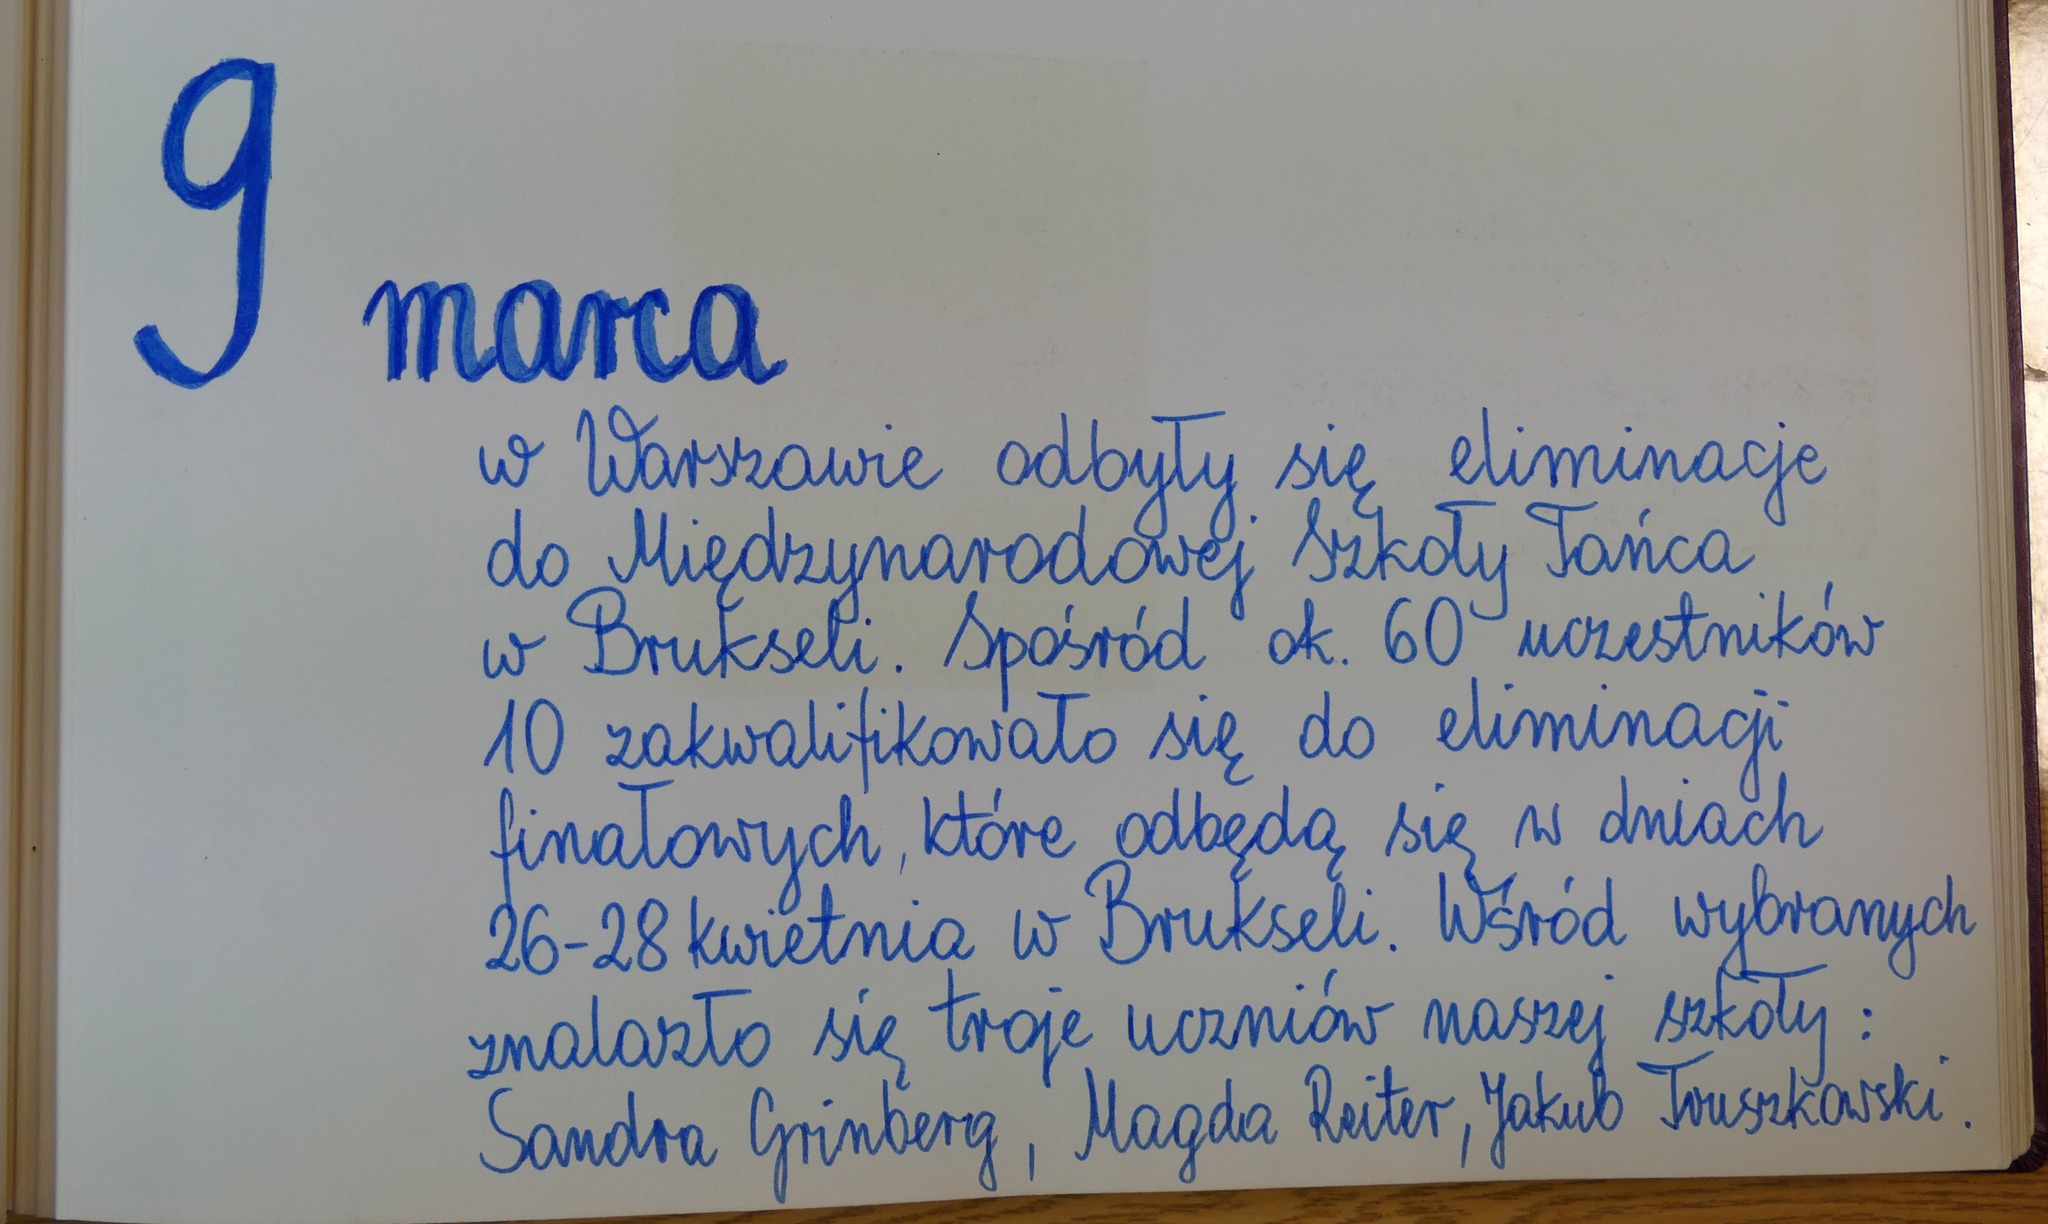 9
marca
w Warszawie odbyły się eliminacje
do Międzynarodowej Szkoły Tańca
w Brukseli. Spośród ok. 60 uczestników
10 zakwalifikowało się do eliminacji
finałowych, które odbędą się w dniach
26-28 kwietnia w Brukseli. Wśród wybranych
znalazło się troje uczniów naszej szkoły:
Sandra Grinberg, Magda Reiter, Jakub Truszkowski.